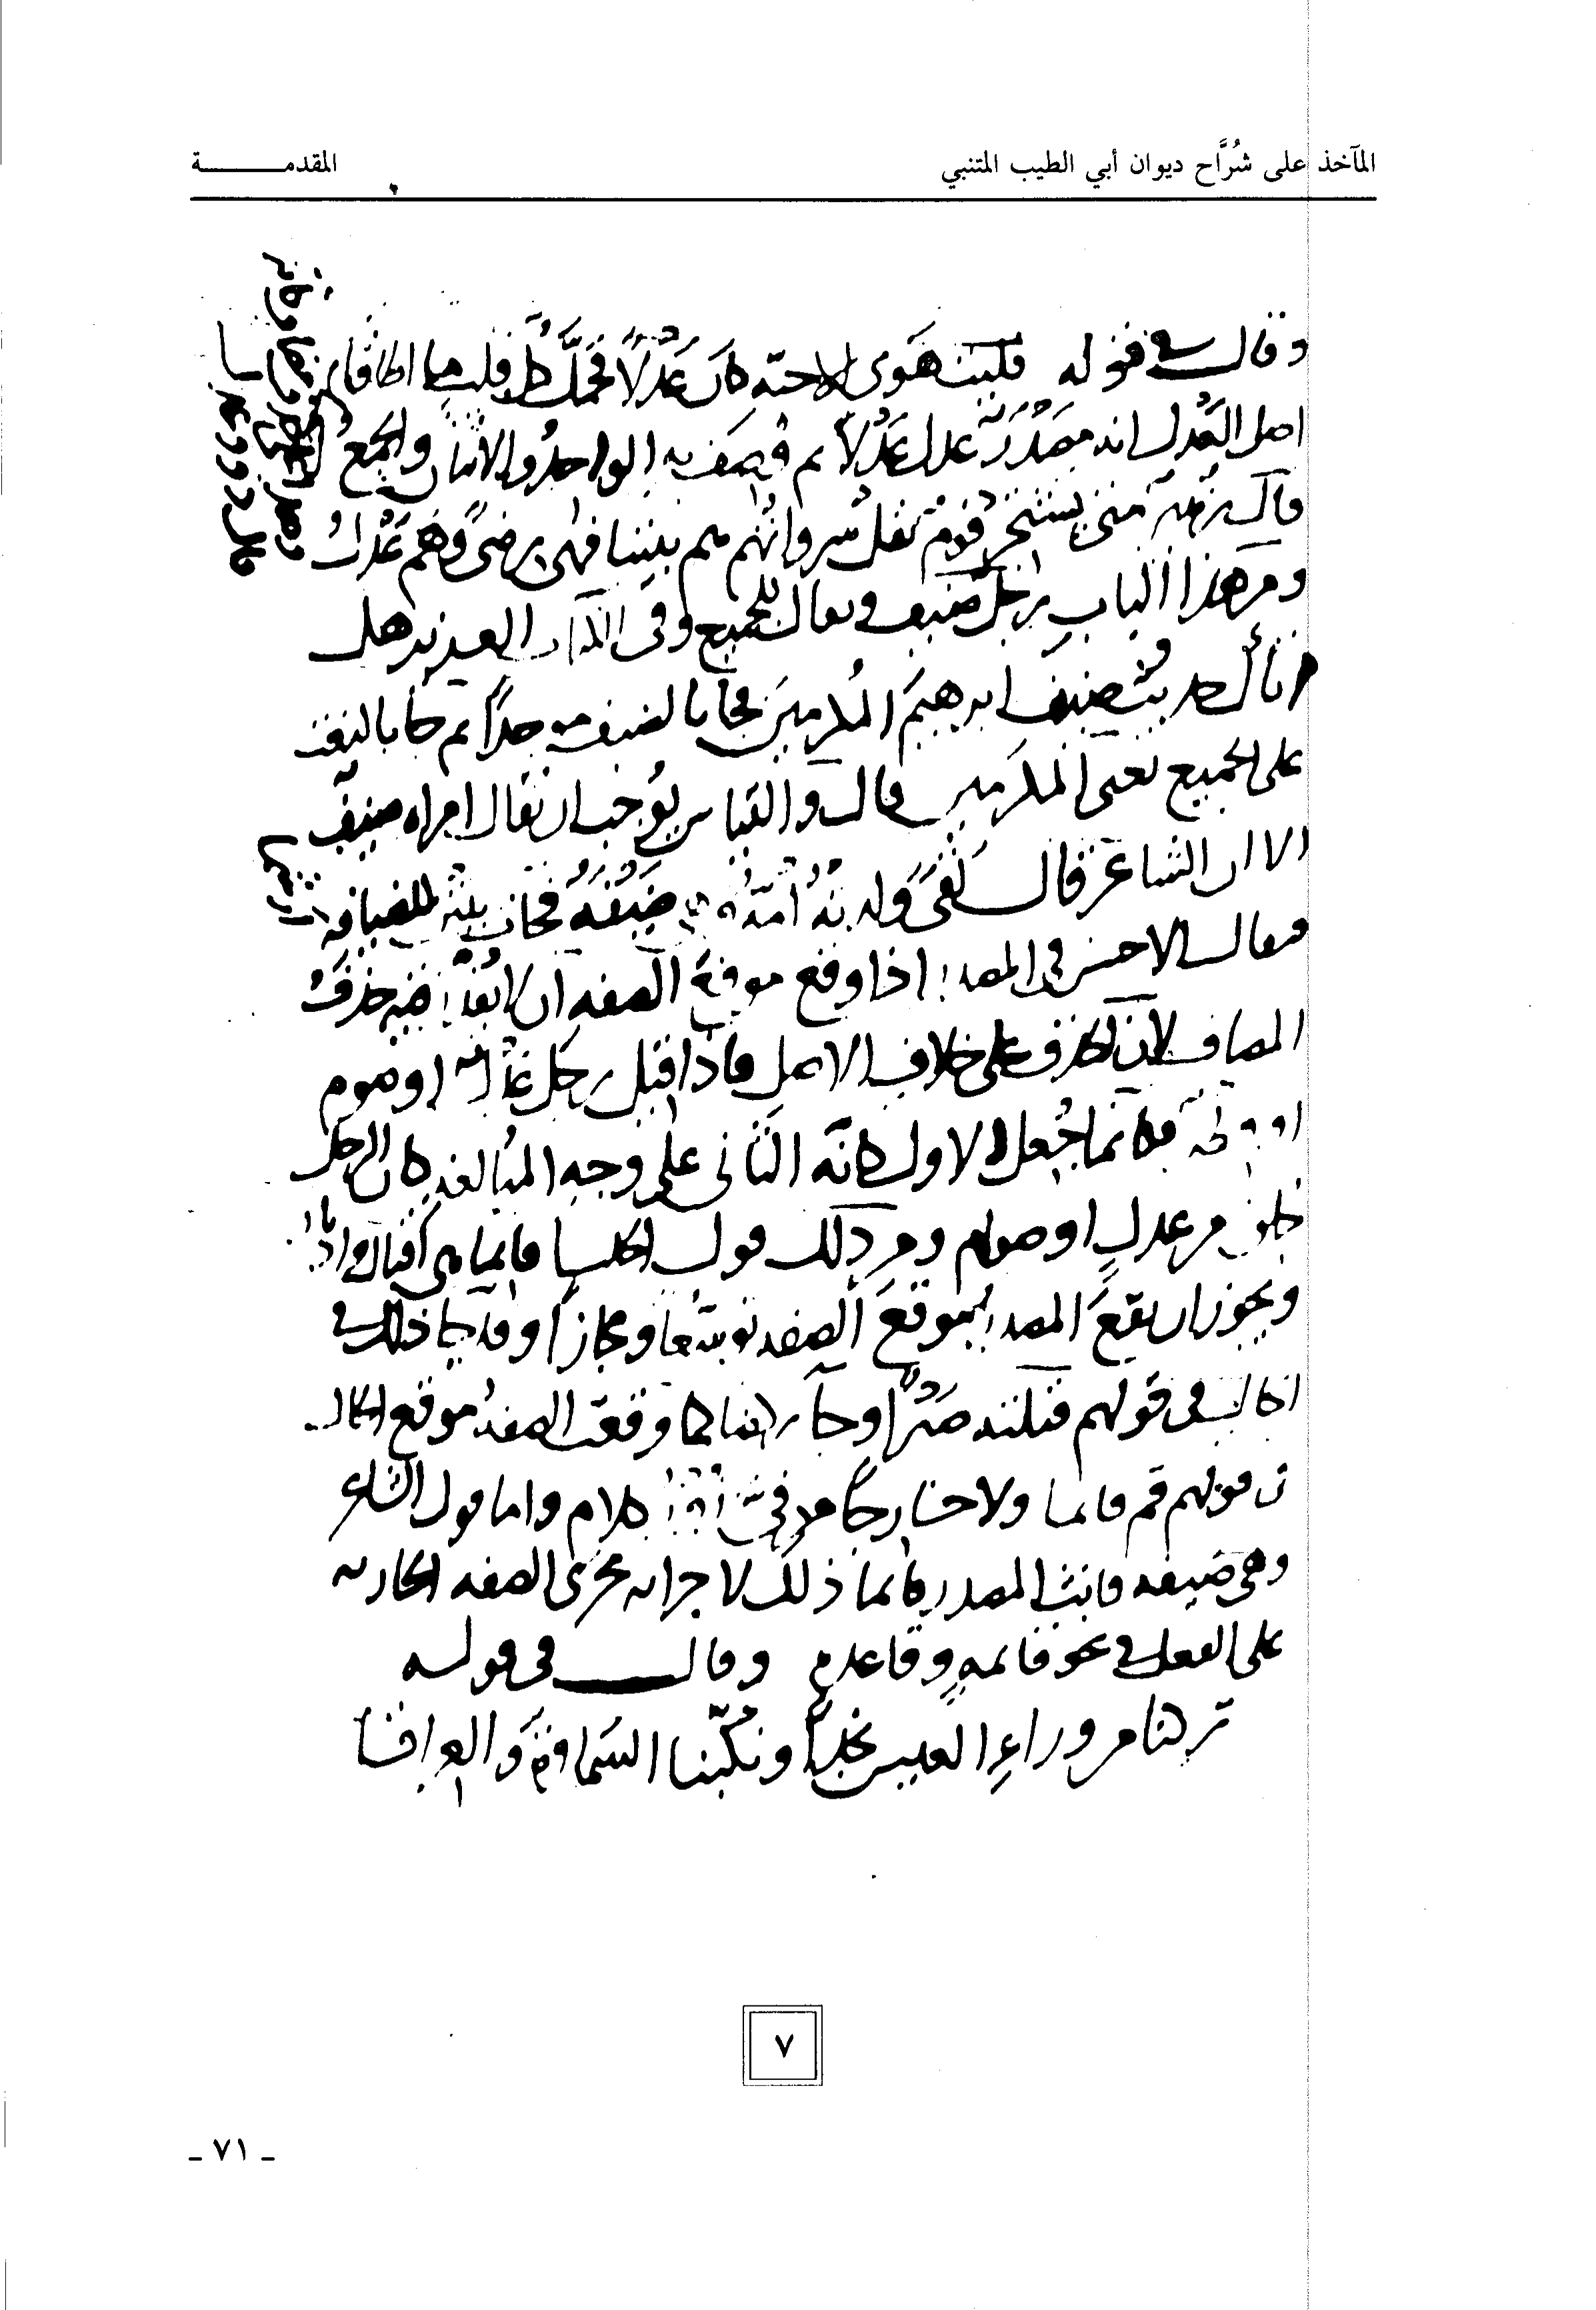 المآخذ على شُرَّاح ديوان أبي الطيب المتنبي
المقدمــــــــة
وقال في قوله فليت هَوى الاحبّه كان عَدْلاً فحمَّل كل قلب ما اطاقا
اصل العَدْل انه مصدر عدل عَدْلاً ثم وُصِف به الواحدُ والاثنان والجمعُ
قال زهير متى يشتجر قومٌ تقل سرواتُهم هم بيننا فهم رضىً وهُم عَدْلُ
ومن هذا الباب رجل ضيف ويقال للجميع وفي الكتاب العزيز هل
اتاك حديثُ ضيف ابرهيمَ المُكرمينَ فجا بالضيف موحداً ثم جا بالنعت
على الجميع يعنى المكرمين قال والقياس يوُجب ان يقال امراه ضيف
الا ان الشاعر قال لَقىً حملته أمّهُ وهى ضَيْفَهٌ فجات للضيافه
فيقال الاحسن في المصدر اذا وقع موقع الصفه ان لا يُقدّر فيه حذفُ
المضاف لان الحذف على خلاف الاصل فاذا قيل رجل عدل او صوم
فكانما جُعل الاول كانه الثانى على وجه المبالغه كان الرجل
خلق من عدلٍ او صوم ومن ذلك قول الخنسا فانما هى اقبال وادبار
ويجوز ان يقعَ المصدر موقعَ الصفه توسّعا ومجازاً وقد جا ذلك في
الحال في قولهم قتلته صَبْراً وجا ركضا كما وقعت الصفهُ موقع
في قولهم قم قايما ولا خارجاً من فىّ كلام واما قول الشاعر
وهى ضيفه فانث المصدر فانما ذلك لاجرايه مجرى الصفه الجاريه
على الفعل في نحو قايمهٍ وقاعدهٍ وقال في قوله
تركنا من وراءِ العيس نجداً ونكّبنا السَماوةَ والعراقا
٧
ـ ٧١ ـ